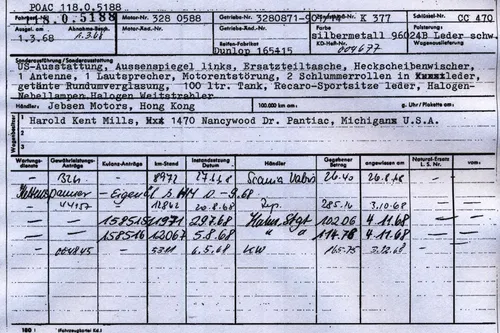 POAC 118.0.5188
118.0.5188 Motor-Nr. 328 0588 Getriebe-Nr. 3280871-90 X 377 Schlüssel-Nr. CC 470
Ausgel. am 1.3.68 1.3.68 Motor-Rad.-Nr. Getriebe-Rad.-Nr. silbermetall 96024B Leder schw.
Reifen-Fabrikat Dunlop 165415 KD-Heft-Nr. 004677 Wagenauslieferung
Sonderausführung / Sonderausstattung
US-Ausstattung, Aussenspiegel links, Ersatzteiltasche, Heckscheibenwischer,
1 Antenne, 1 Lautsprecher, Motorentstörung, 2 Schlummerrollen in leder,
getönte Rundumverglasung, 100 ltr. Tank, Recaro-Sportsitze leder, Halogen-
Nebellampen, Halogen Weitstrahler
Händler: Jebsen Motors, Hong Kong 100.000 km am: g. Uhr / Plakette am:
Wageninhaber
1 Harold Kent Mills, 1470 Nancywood Dr. Pantiac, Michigan U.S.A.
2
3
Wartungs-dienste Gewährleistungs-Anträge Kulanz-Anträge km-Stand Instandsetzung Datum Händler Gegebener Betrag angewiesen am Natural-Ersatz L. S. Nr. vom:
8972 27.4.68 Scania Vabis 26.40 26.8.68
Kettenspanner - Eigen
44157 12862 20.8.68 285.16 3.10.68
158515 11971 29.7.68 Hahn, Stgt 102.06 4.11.68
158516 12067 5.8.68 " " 114.78 4.11.68
004845 5311 6.5.68 165.75 3.12.68
180 (Fahrzeugkartei Kd.)